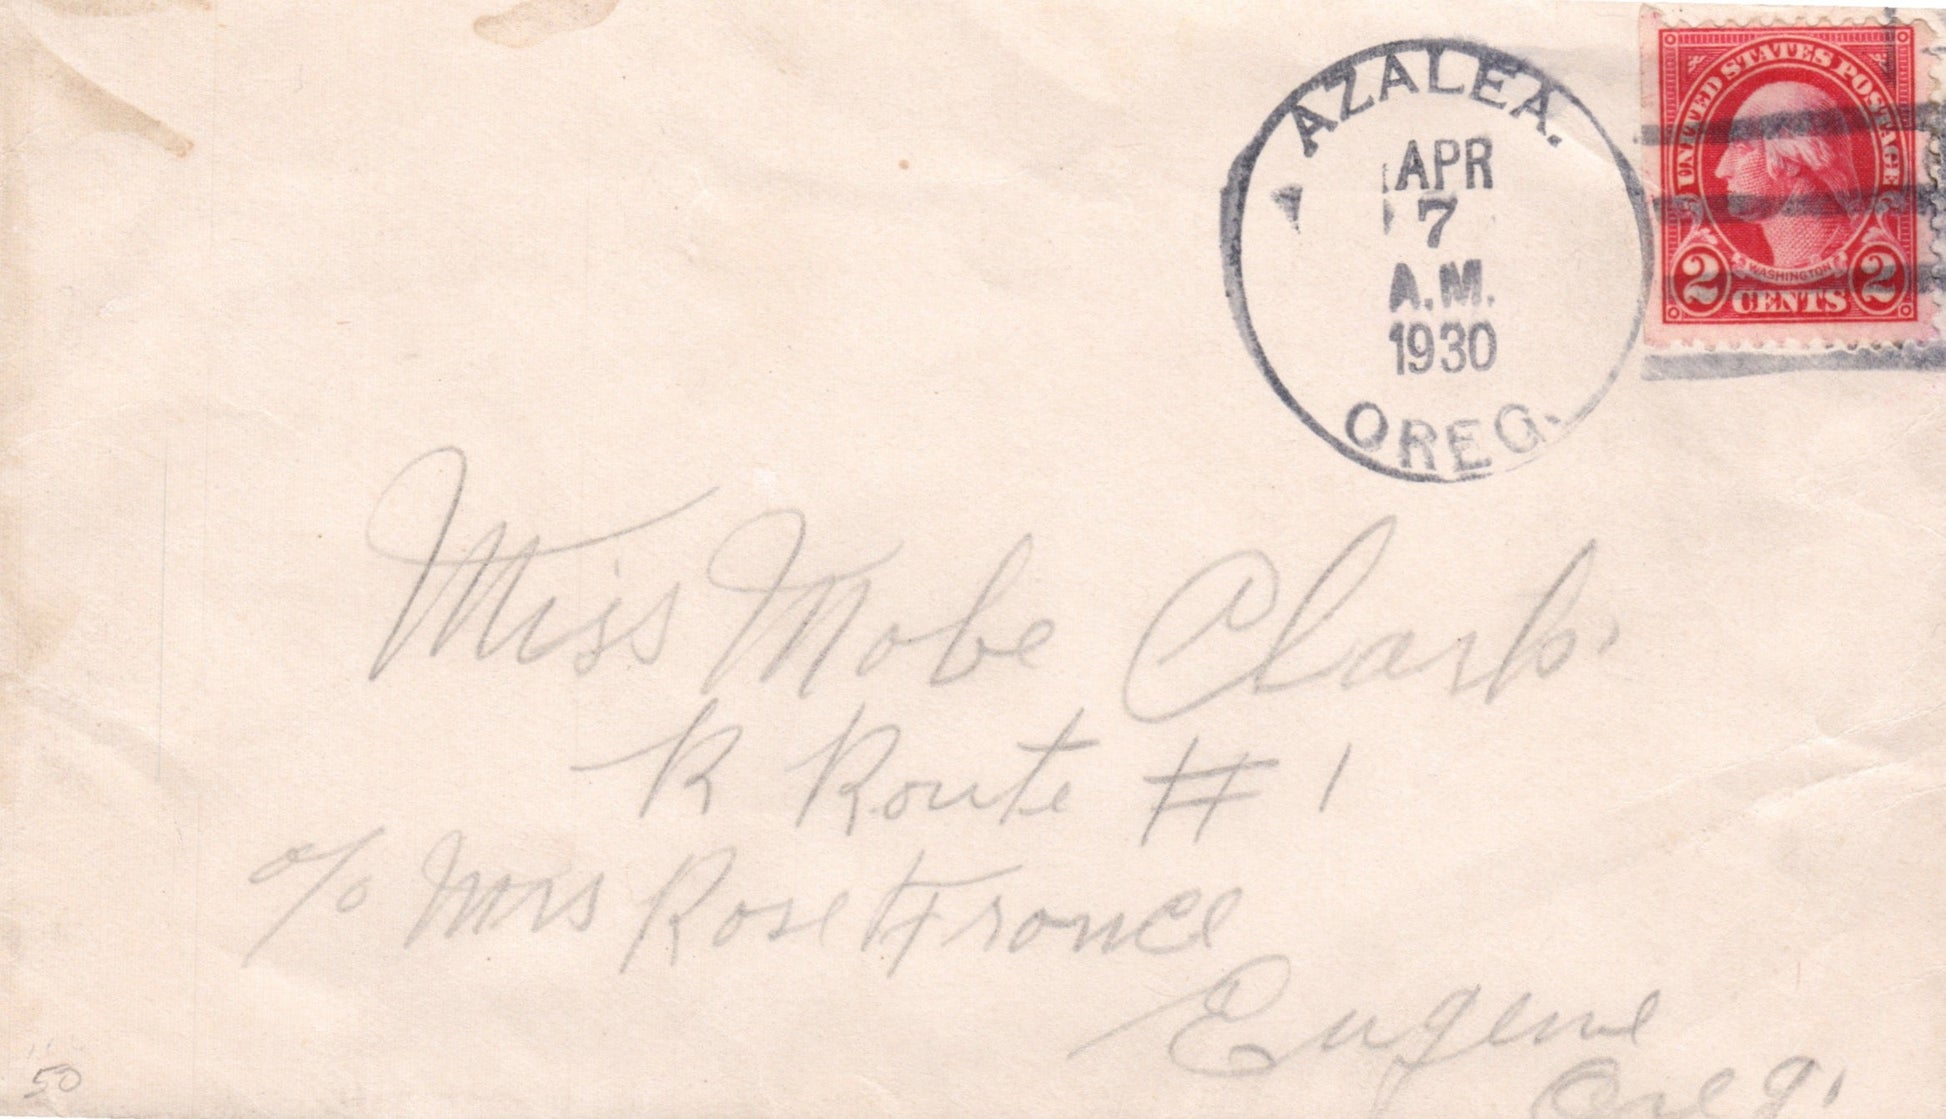 AZALEA.
APR
7
A.M.
1930
OREG.
UNITED STATES POSTAGE
WASHINGTON
2 CENTS 2
Miss Mobe Clark.
R Route #1
c/o Mrs Rose France
Eugene
Oreg.
50